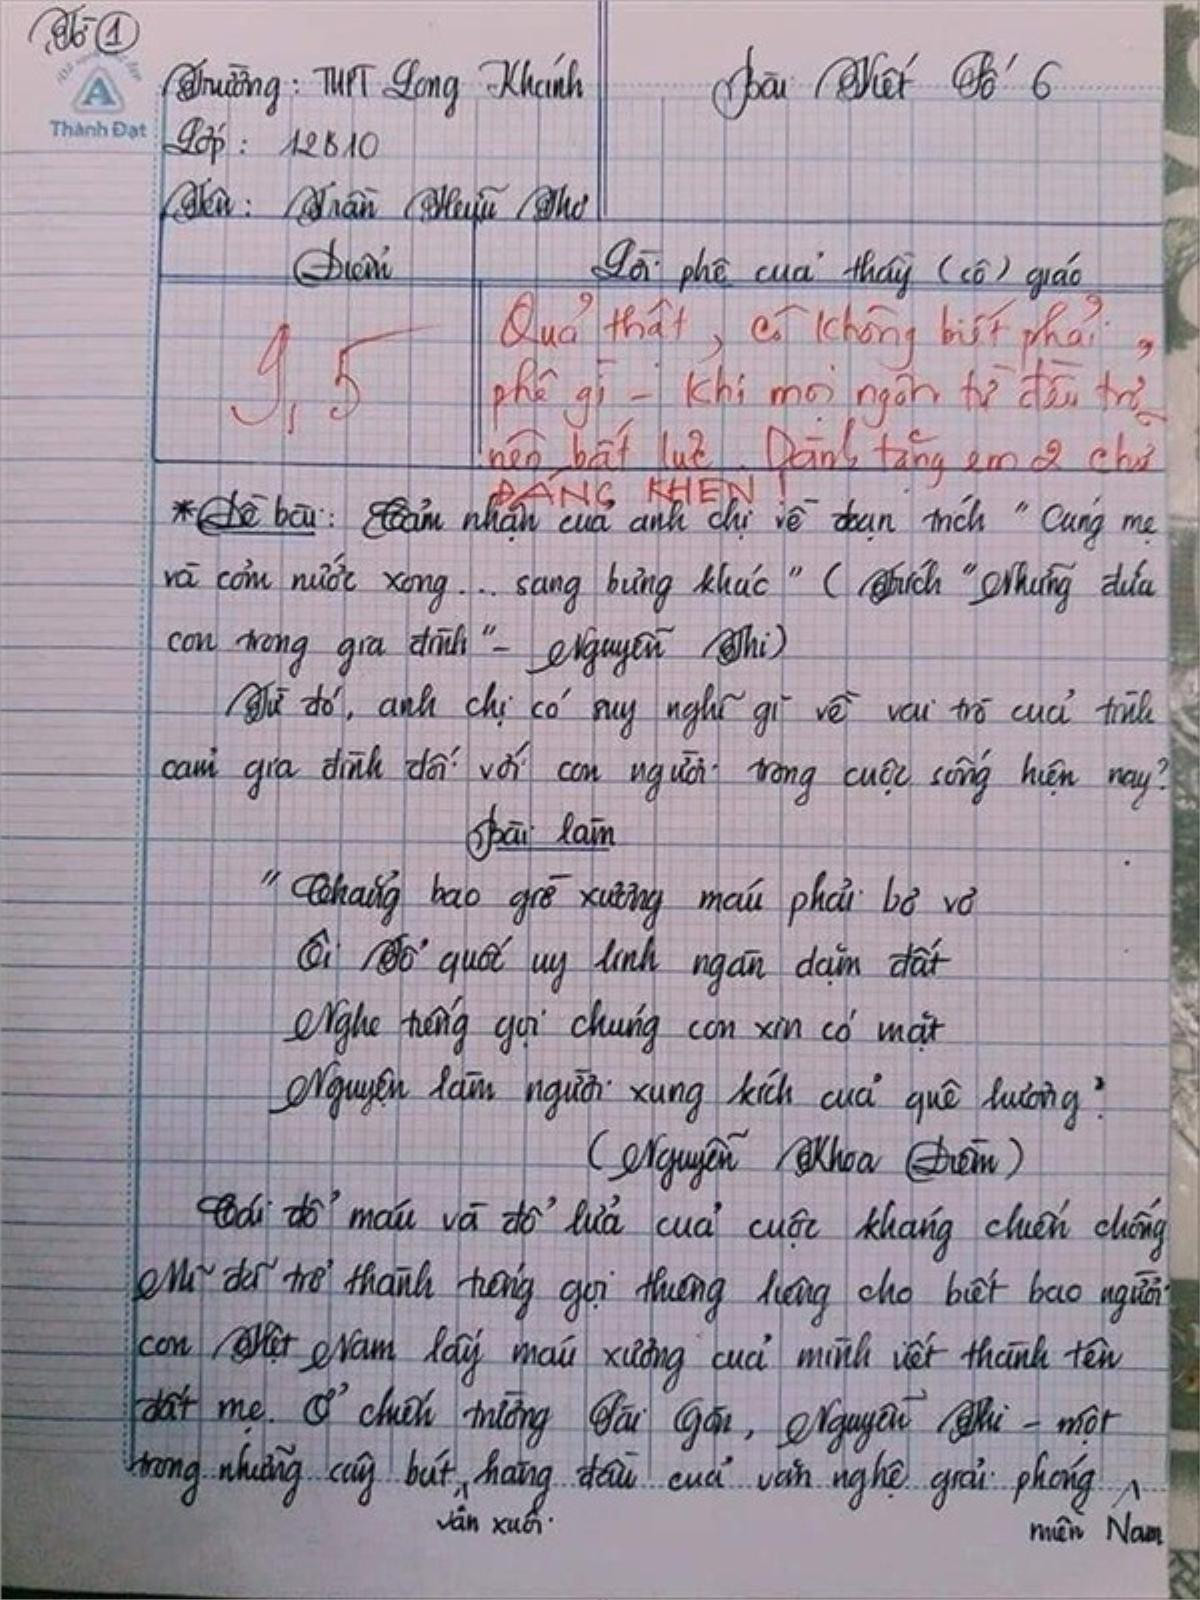 Tờ 1
Thành Đạt
Trường: THPT Long Khánh
Bài Viết Số 6
Lớp: 12B10
Tên: Trần Hữu Thơ
Điểm
Lời phê của thầy (cô) giáo
9,5
Quả thật, cô không biết phải
phê gì - khi mọi ngôn từ đều trở
nên bất lực. Dành tặng em 2 chữ
ĐÁNG KHEN!
*Đề bài: Cảm nhận của anh chị về đoạn trích "Cúng mẹ
và cơm nước xong... sang bưng khác" (Trích "Những đứa
con trong gia đình" - Nguyễn Thi)
Từ đó, anh chị có suy nghĩ gì về vai trò của tình
cảm gia đình đối với con người trong cuộc sống hiện nay?
Bài làm
"Chẳng bao giờ xương máu phải bơ vơ
Ôi Tổ quốc uy linh ngàn dặm đất
Nghe tiếng gọi chúng con xin có mặt
Nguyện làm người xung kích của quê hương"
(Nguyễn Khoa Điềm)
Cái đổ máu và đổ lửa của cuộc kháng chiến chống
Mĩ đã trở thành tiếng gọi thiêng liêng cho biết bao người
con Việt Nam lấy máu xương của mình viết thành tên
đất mẹ. Ở chiến trường Sài Gòn, Nguyễn Thi - một
trong những cây bút hàng đầu của văn nghệ giải phóng
văn xuôi
miền Nam